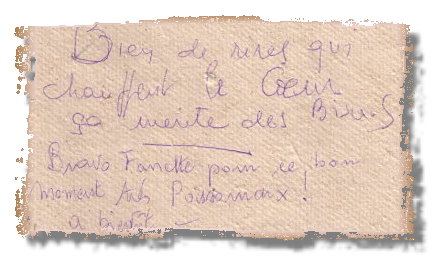 Bien de rires qui
chauffent le Cœur
ça mérite des Bisous
Bravo Fanette pour ce bon
moment très Poissonnax !
a bientôt